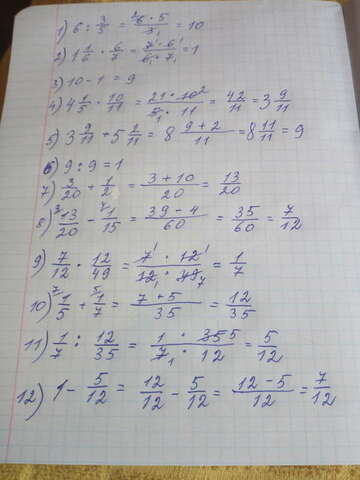 1) 6 : 3/5 = 6 · 5 / 3 = 10
2) 1 1/6 · 6/7 = 7 · 6 / 6 · 7 = 1
3) 10 - 1 = 9
4) 4 1/5 · 10/11 = 21 · 10 / 5 · 11 = 42/11 = 3 9/11
5) 3 9/11 + 5 2/11 = 8 9+2/11 = 8 11/11 = 9
6) 9 : 9 = 1
7) 3/20 + 1/2 = 3+10/20 = 13/20
8) 13/20 - 1/15 = 39-4/60 = 35/60 = 7/12
9) 7/12 · 12/49 = 7 · 12 / 12 · 49 = 1/7
10) 1/5 + 1/7 = 7+5/35 = 12/35
11) 1/7 : 12/35 = 1 · 35 / 7 · 12 = 5/12
12) 1 - 5/12 = 12/12 - 5/12 = 12-5/12 = 7/12